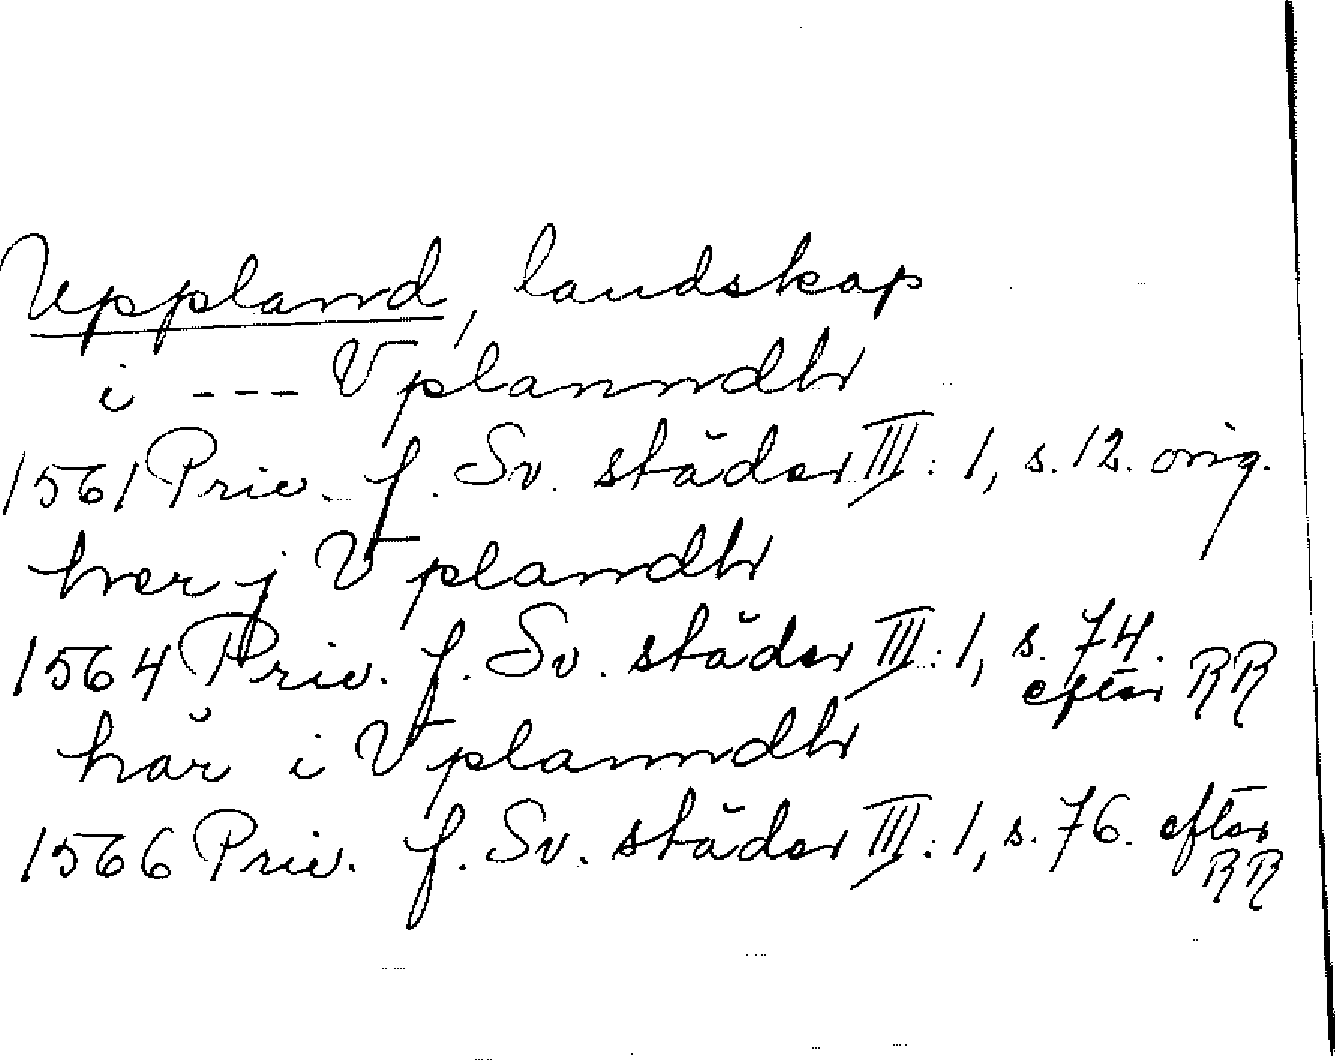 Uppland, landskap
i --- Vplanndh
1561 Priv. f. Sv. städer III:1, s. 12. orig.
hver j Vplandh
1564 Priv. f. Sv. städer III:1, s. 74.
efter RR
här i Vplanndh
1566 Priv. f. Sv. städer III:1, s. 76. efter
RR